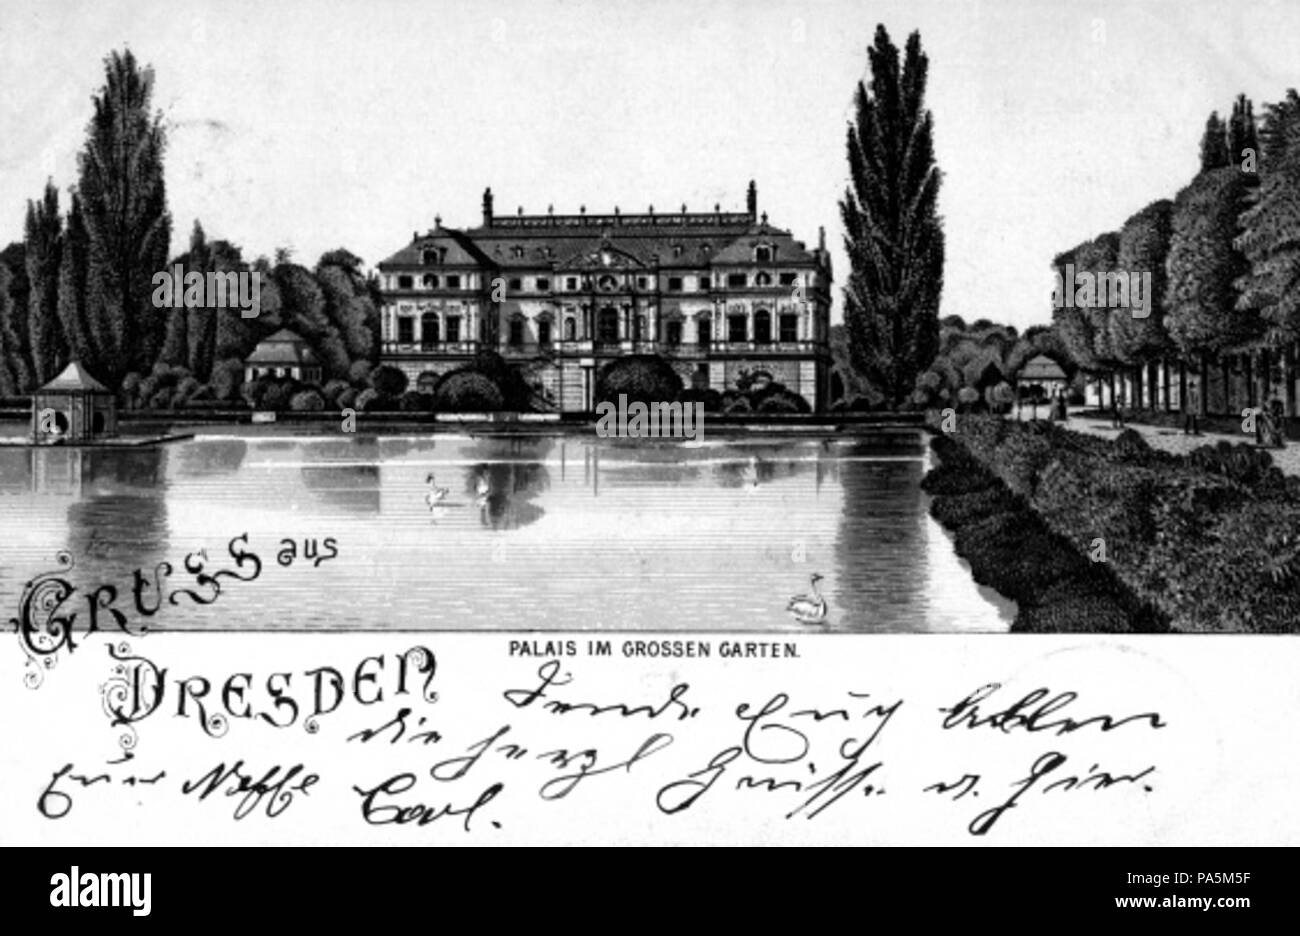 GRUSS aus
DRESDEN
PALAIS IM GROSSEN GARTEN.
Sende Euch Allen
die herzl Grüsse v. hier.
Euer Neffe Carl.
alamy
alamy
Image ID: PA5M5F
www.alamy.com